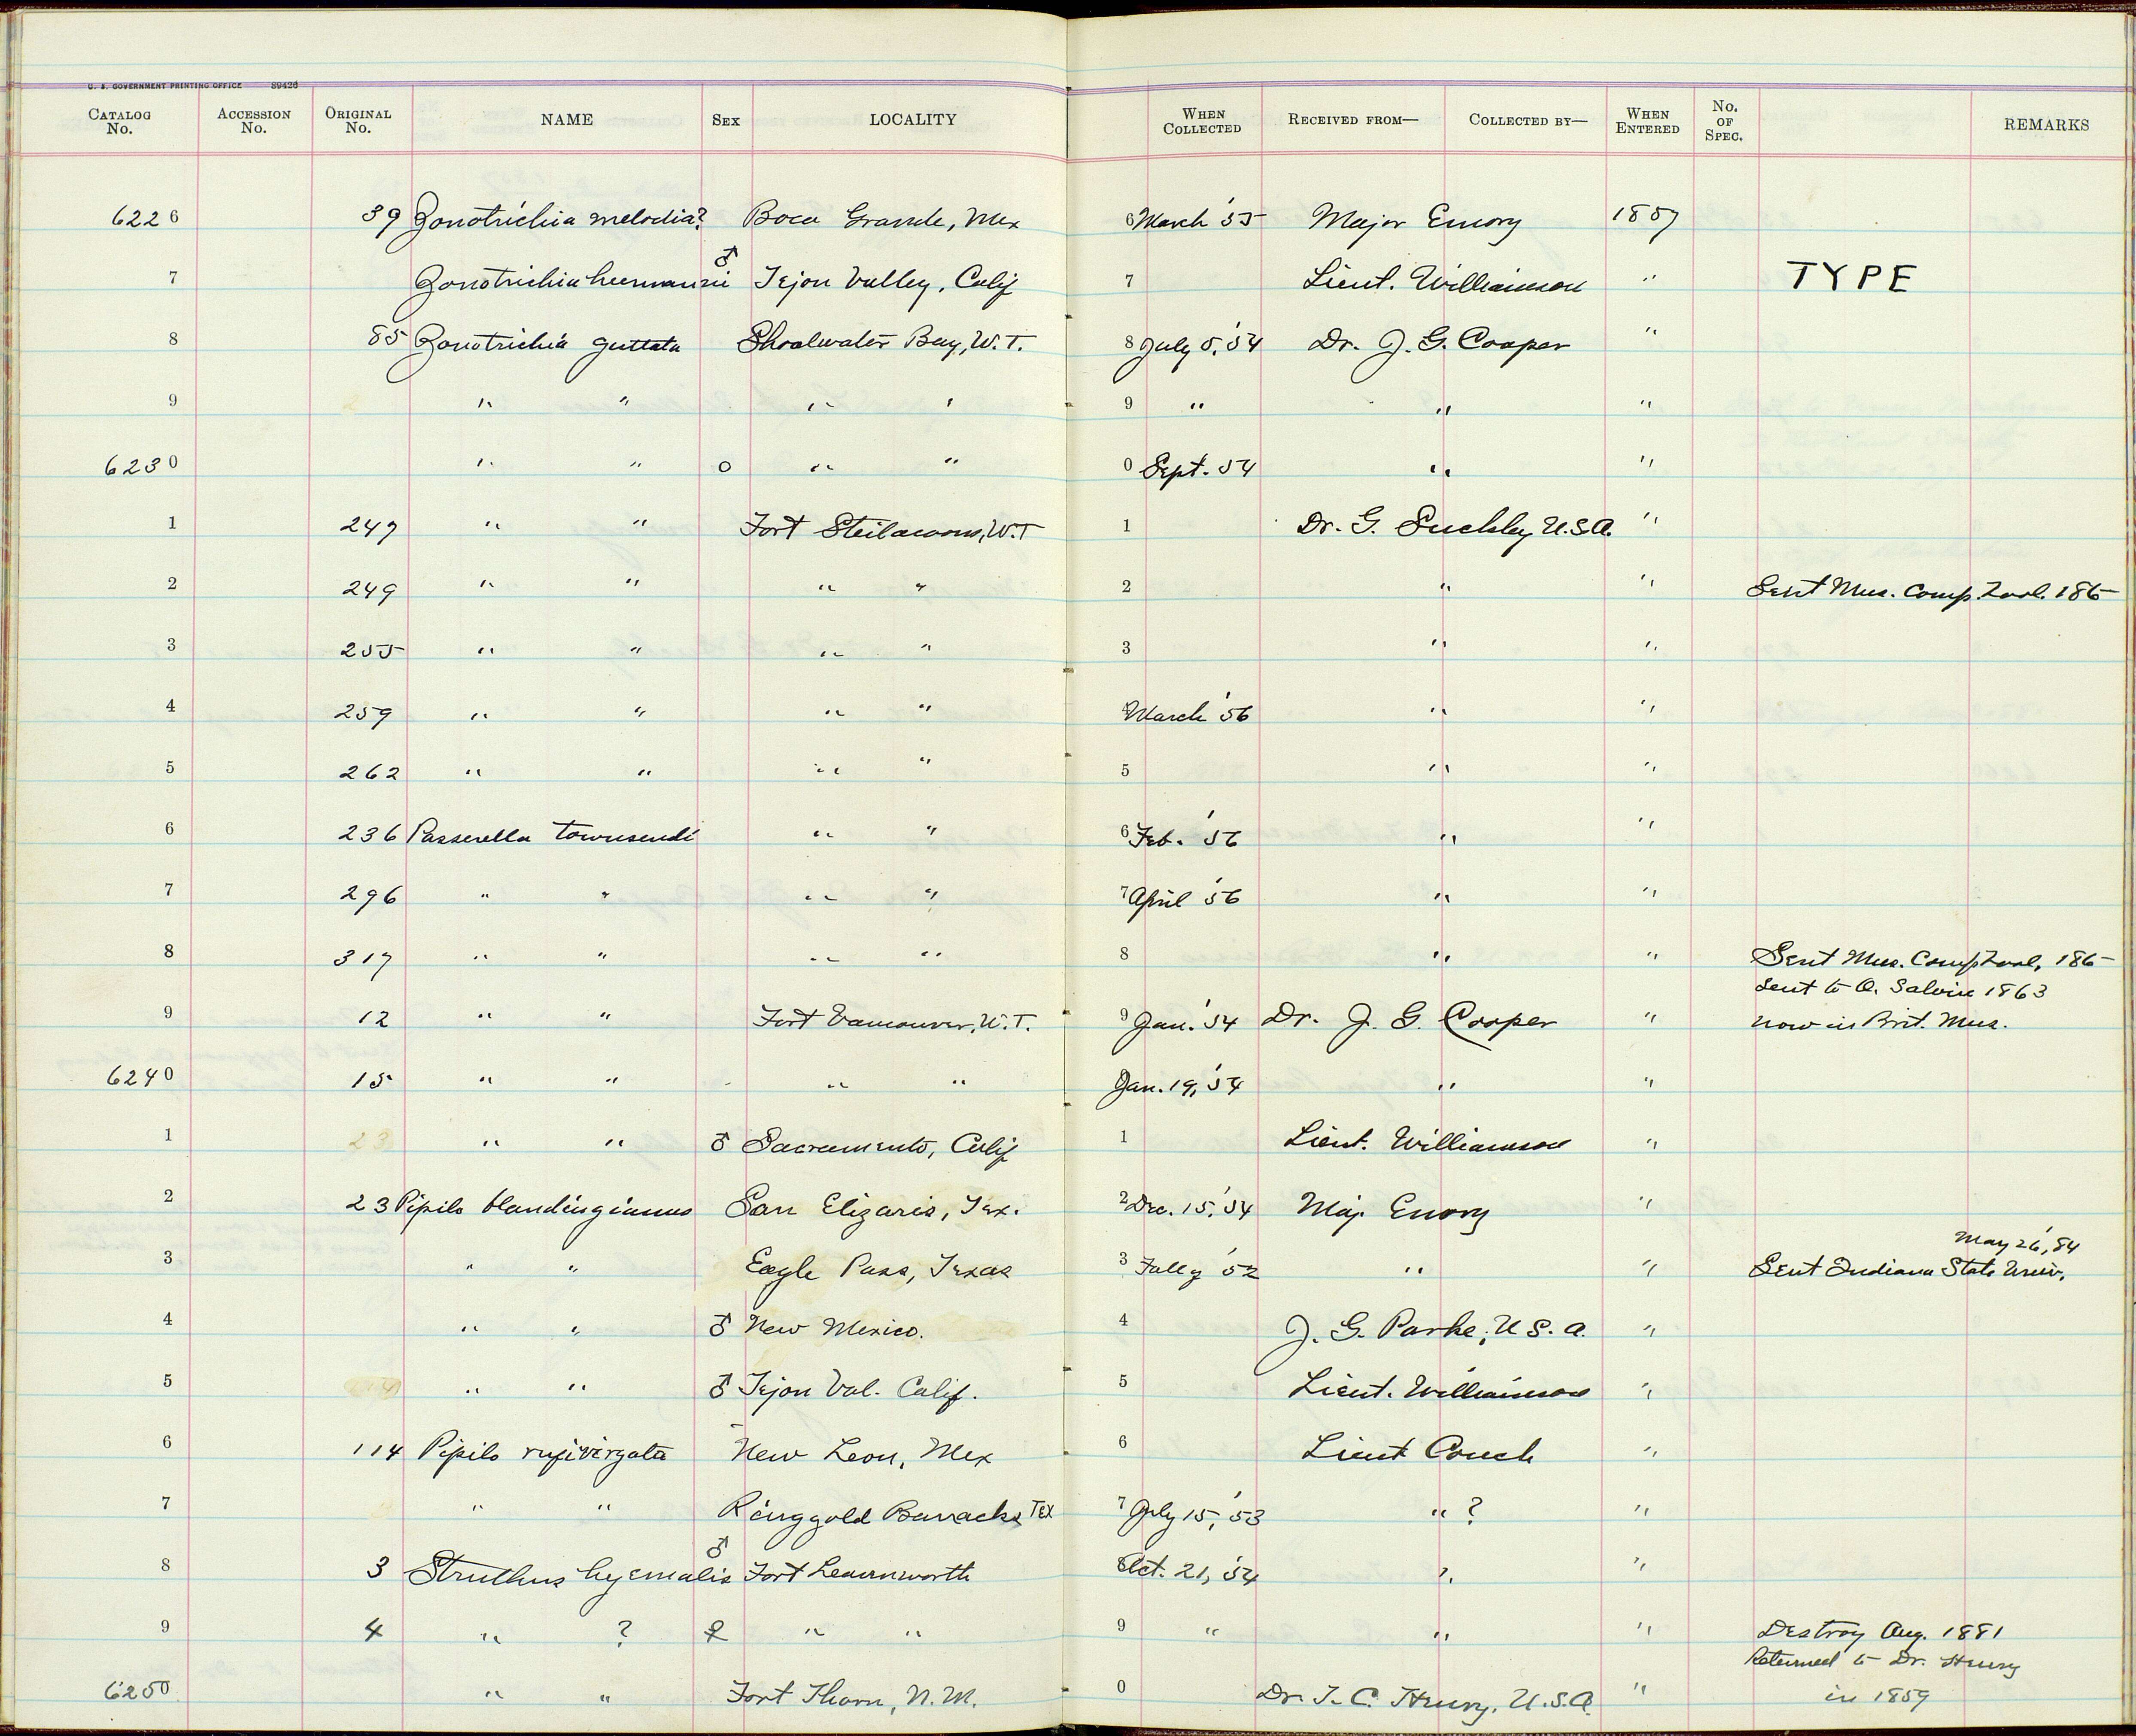 U. S. GOVERNMENT PRINTING OFFICE 89426
CATALOG No. ACCESSION No. ORIGINAL No. NAME SEX LOCALITY WHEN COLLECTED RECEIVED FROM— COLLECTED BY— WHEN ENTERED No. OF SPEC. REMARKS
6226 39 Zonotrichia melodia? Boca Grande, Mex 6 March '55 Major Emory 1857
7 Zonotrichia heermanni ♂ Tejon Valley, Calif 7 Lieut. Williamson " TYPE
8 85 Zonotrichia guttata Shoalwater Bay, W.T. 8 July 5, '54 Dr. J. G. Cooper "
9 " " " " 9 " " "
6230 " " o " " 0 Sept. 54 " "
1 247 " " Fort Steilacoom, W.T 1 Dr. G. Suckley U.S.A. "
2 249 " " " " 2 " " Sent Mus. Comp. Zool. 186-
3 255 " " " " 3 " "
4 259 " " " " 4 March '56 " "
5 262 " " " " 5 " "
6 236 Passerella townsendi " " 6 Feb. '56 " "
7 296 " " " " 7 April '56 " "
8 317 " " " " 8 " " Sent Mus. Comp Zool, 186-
Sent to O. Salvin 1863
9 12 " " Fort Vancouver, W.T. 9 Jan. '54 Dr. J. G. Cooper " now in Brit. Mus.
6240 15 " " " " Jan. 19, '54 " "
1 23 " " ♂ Sacramento, Calif 1 Lieut. Williamson "
2 23 Pipilo blandingianus San Elizario, Tex. 2 Dec. 15, '54 Maj. Emory "
May 26, '84
3 " " Eagle Pass, Texas 3 Fall of '52 " " Sent Indiana State Univ.
4 " " ♂ New Mexico. 4 J. G. Parke, U.S.A. "
5 " " ♂ Tejon Val. Calif. 5 Lieut. Williamson "
6 114 Pipilo rufivirgata New Leon, Mex 6 Lieut Couch "
7 " " Ringgold Barracks TEX 7 July 15, '53 " ? "
8 3 Struthus hyemalis ♂ Fort Leavenworth 8 Oct. 21, '54 ? "
9 4 " ? ♀ " " 9 " " " Destroy Aug. 1881
Returned to Dr. Henry
6250 " " Fort Thorn, N.M. 0 Dr. T. C. Henry, U.S.A. " in 1859